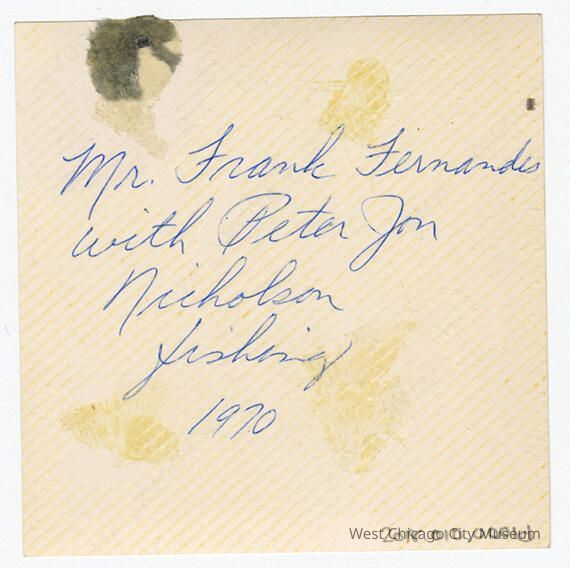 Mr. Frank Fernandes
with Peter Jon
Nicholson
fishing
1970
West Chicago City Museum